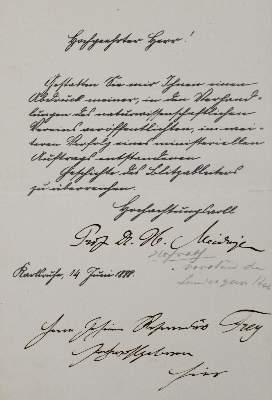 Hochgeehrter Herr!
Gestatten Sie mir Ihnen einen
Abdruck meiner, in den Verhand-
lungen des naturwissenschaftlichen
Vereins veröffentlichten, im wei-
teren Verfolg eines ministeriellen
Auftrags entstandenen
Geschichte des Blitzableiters
zu überreichen.
Hochachtungsvoll
Prof. Dr. H. Meidinger
Hofrath
Karlsruhe, 14 Juni 1888.
Herrn Frey
Hochwohlgeboren
hier